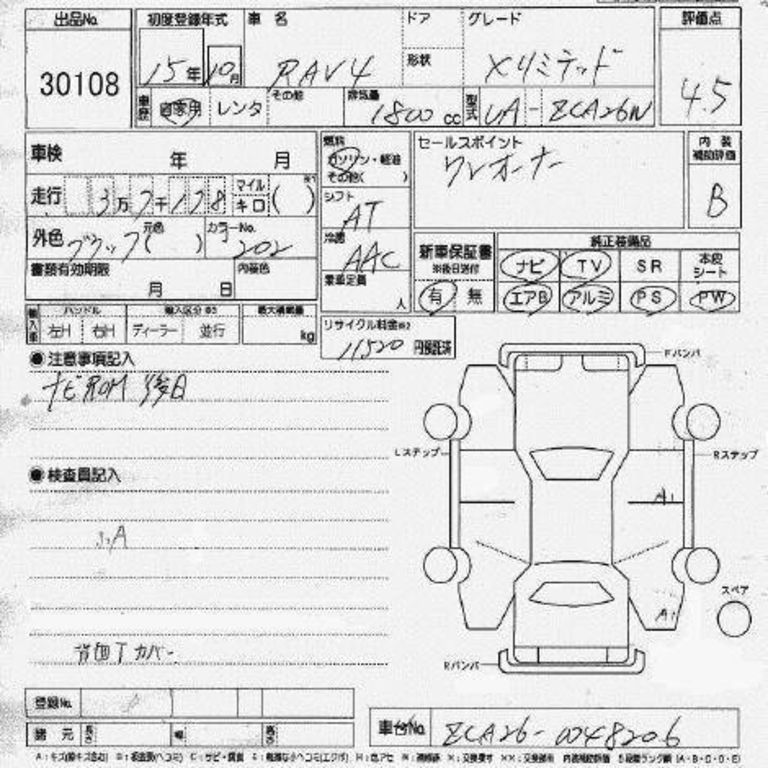 出品No. 初度登録年式 車名 ドア グレード 評価点
30108 15年10月 RAV4 形状 Xリミテッド 4.5
車歴 自家用 レンタ その他 排気量 1800cc 型式 UA-ZCA26W
車検 年 月 燃料 ガソリン・軽油 その他( ) セールスポイント 内装補助評価
ワンオーナー B
走行 3万7千178 マイル キロ ( ) シフト AT
外色 ブラック 元色 ( ) カラーNo. 202 冷房 AAC
新車保証書 ※後日送付 純正装備品
ナビ TV SR 本皮シート
有 無 エアB アルミ PS PW
書類有効期限 内装色 乗車定員
月 日 人
輸入車 ハンドル 輸入区分 最大積載量
左H 右H ディーラー 並行 kg
リサイクル料金 11520 円預託済
●注意事項記入
ナビROM後日
●検査員記入
小A
背面Tカバー
Fバンパ
Lステップ Rステップ
A1
A1
スペア
Rバンパ
登録No.
諸元 長さ 幅 高さ
車台No. ZCA26-0048206